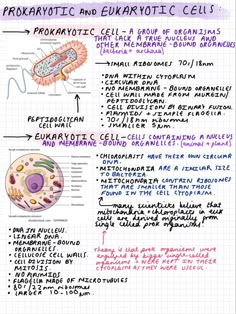 PROKARYOTIC AND EUKARYOTIC CELLS:
→ PROKARYOTIC CELL - A GROUP OF ORGANISMS
THAT LACK A TRUE NUCLEUS AND
OTHER MEMBRANE-BOUND ORGANELLES
(bacteria + archaea)
→ SMALL RIBOSOMES 70s/18nm
• DNA WITHIN CYTOPLASM
• CIRCULAR DNA
• NO MEMBRANE-BOUND ORGANELLES
• CELL WALL MADE FROM MUREIN/
PEPTIDOGLYCAN.
• CELL DIVISION BY BINARY FUSION.
• PLASMIDS + SIMPLE FLAGELLA.
• 70s/18nm ribosomes
• SMALLER
PEPTIDOGLYCAN
CELL WALL
→ EUKARYOTIC CELL - CELLS CONTAINING A NUCLEUS
AND MEMBRANE-BOUND ORGANELLES. (animal + plant)
• CHLOROPLASTS HAVE THEIR OWN CIRCULAR
DNA.
• MITOCHONDRIA ARE A SIMILAR SIZE
TO BACTERIA.
• MITOCHONDRIA CONTAIN RIBOSOMES
THAT ARE SMALLER THAN THOSE
FOUND IN THE CELL CYTOPLASM
many scientists believe that
mitochondria + chloroplasts in euk
cells are derived originally from
single celled prok organisms!
• DNA IN NUCLEUS.
• LINEAR DNA.
• MEMBRANE-BOUND
ORGANELLES.
• CELLULOSE CELL WALLS.
• CELL DIVISION BY
MITOSIS.
• NO PLASMIDS
• FLAGELLA MADE OF MICROTUBULES
• 80s/22nm ribosomes
• LARGER 10-100µm.
Theory is that prok organisms were
engulfed by bigger single-celled
organisms + WERE KEPT IN THEIR
CYTOPLASM AS THEY WERE USEFUL